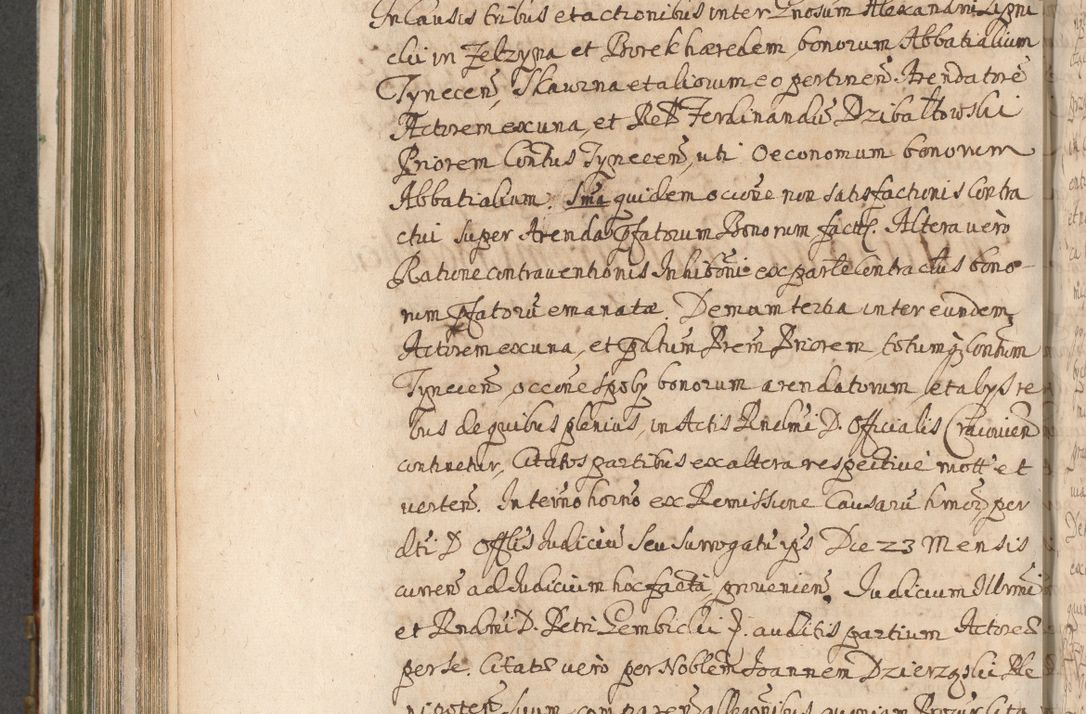 In Causis tribus et actionibus inter Gnosum Alexandrum Lipni
cki in Zelzyna et Borek hæredem bonorum Abbatialium
Tynecen, Skawina et aliorum eo pertinen Arendatorē
Actorem ex una, et Rēd Ferdinandū Dzibałtowski
Priorem Contus Tynecen, uti Oeconomum bonorum
Abbatialium. Sma quidem occōne non satisfactionis Contra
ctui super Arenda pfatorum Bonorum factt. Altera vero
Ratione contraventionis Inhibōni ex parte Contractus bono-
rum pfatorū emanatæ. Demum tertia inter eundem
Actorem ex una, et pdtum Prem Priorem totumq Contum
Tynecen occōne Spoly bonorum arendatorum et alys re
bus de quibus plenius, in Actis Rndmi D. Officialis Cracovien
continetur, Citatos partibus ex altera respective mott et
verten. In termo horno ex Remissione Causarū hmoi per
dti D Offlis Judiciū Seu Surrogatū ips Die 23 Mensis
curren ad Judicium hoc facta, provenien. Judicium Illrmi
et Rndmi D. Petri Gembicki p. auditis partium Actores
per se. Citatē vero per Noblem Joannem Dzierzgski Ple
nipoten suum comparen allegōnibus quoniam